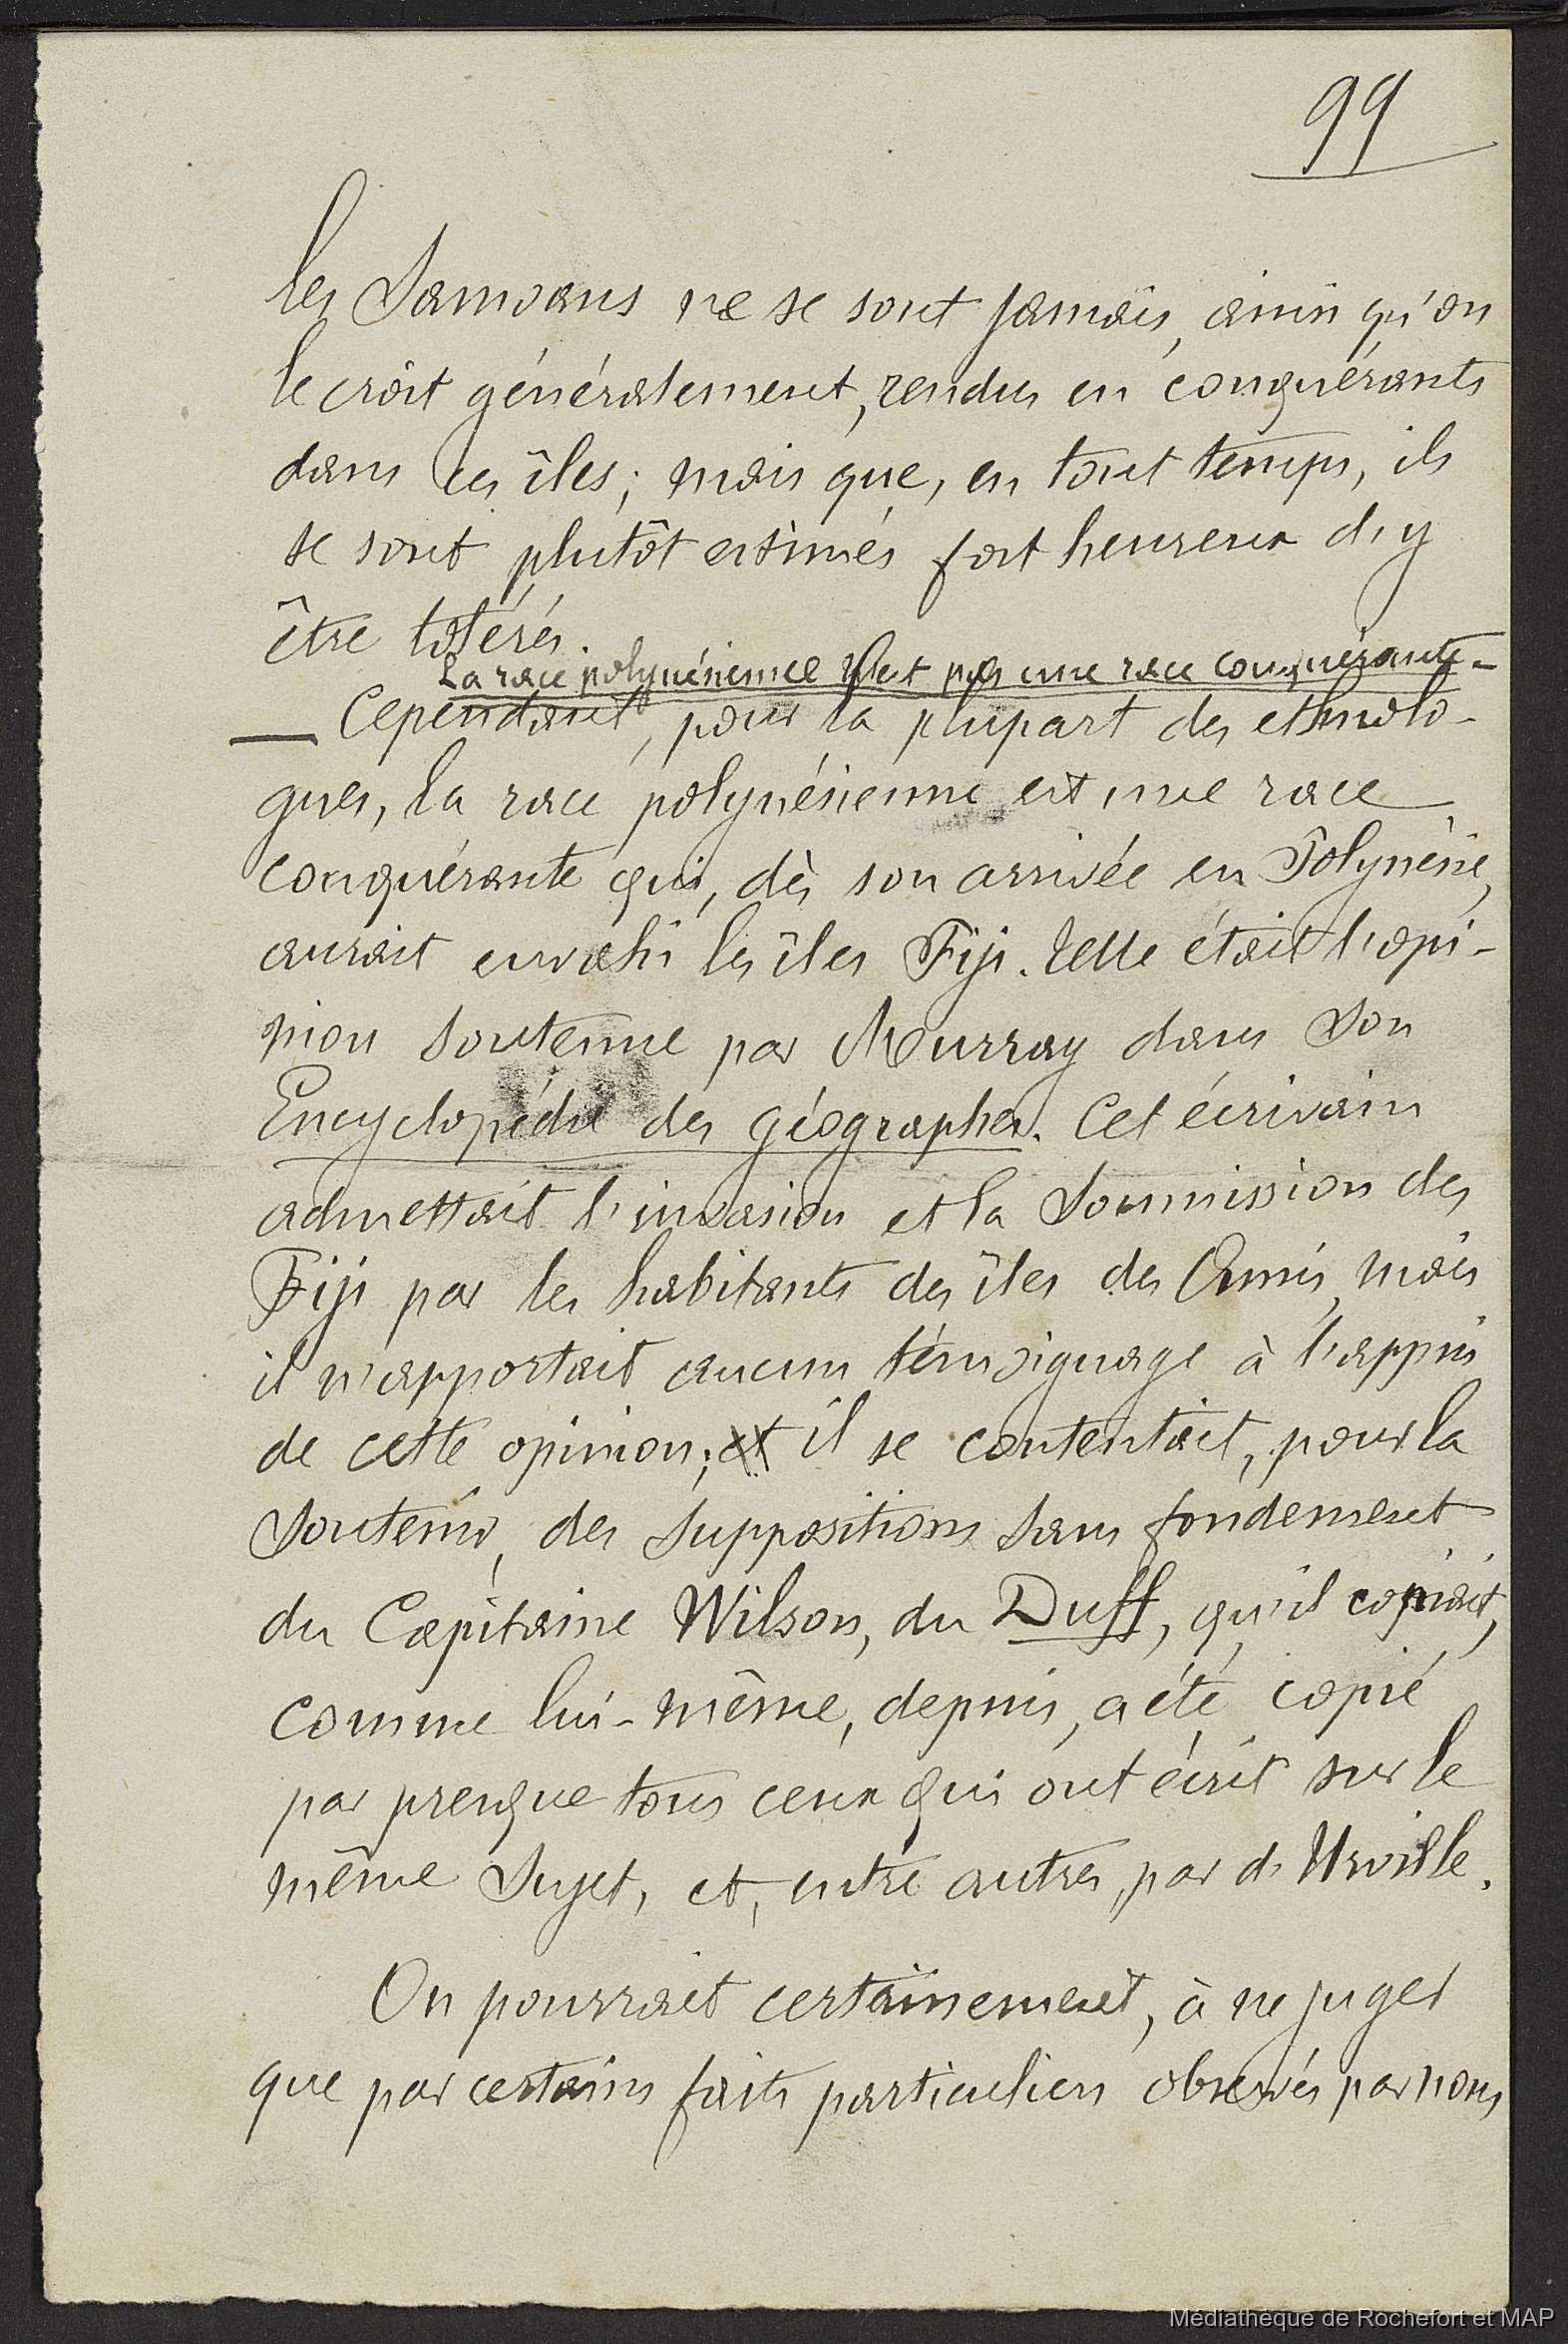 99
les Samoans ne se sont jamais, ainsi qu'on
le croit généralement, rendus en conquérants
dans ces îles; mais que, en tout temps, ils
se sont plutôt estimés fort heureux d'y
être tolérés.
La race polynésienne n'est pas une race conquérante-
— Cependant, pour la plupart des ethnolo-
gues, la race polynésienne est une race
conquérante qui, dès son arrivée en Polynésie,
aurait envahi les îles Fiji. Telle était l'opi-
nion soutenue par Murray dans son
Encyclopédie des géographes. Cet écrivain
admettait l'invasion et la soumission des
Fiji par les habitants des îles des Amis, mais
il n'apportait aucun témoignage à l'appui
de cette opinion; et il se contentait, pour la
soutenir, des suppositions sans fondement
du Capitaine Wilson, du Duff, qu'il copiait,
comme lui-même, depuis, a été copié
par presque tous ceux qui ont écrit sur le
même sujet, et, entre autres, par d'Urville.
On pourrait certainement, à ne juger
que par certains faits particuliers observés par nous
Médiathèque de Rochefort et MAP